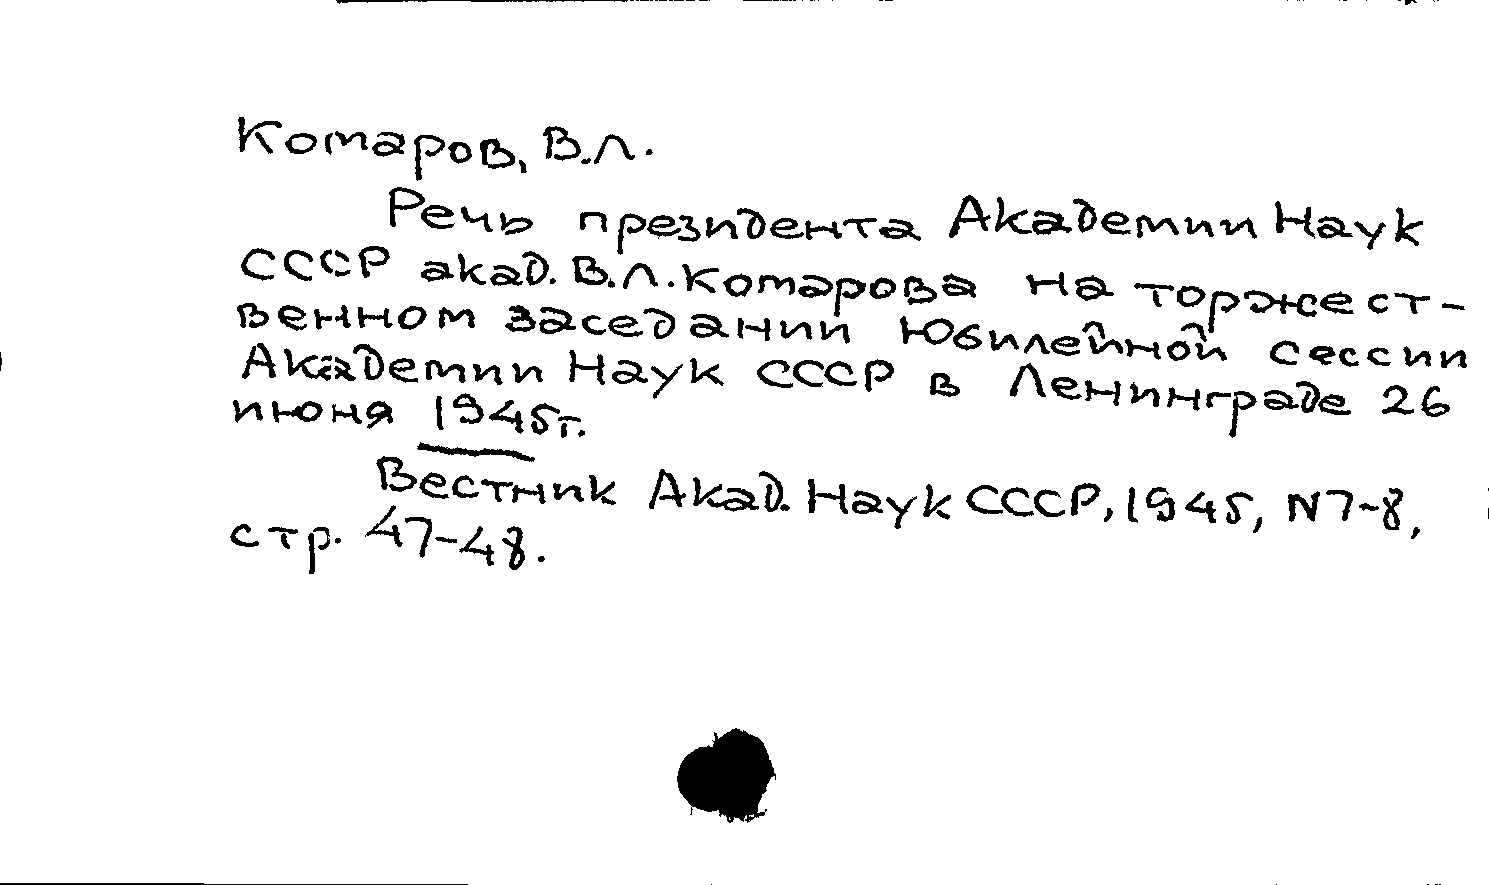 Комаров, В.Л.
Речь президента Академии Наук
СССР акад. В.Л. Комарова на торжест-
венном заседании Юбилейной сессии
Академии Наук СССР в Ленинграде 26
июня 1945г.
Вестник Акад. Наук СССР, 1945, N7-8,
стр. 47-48.